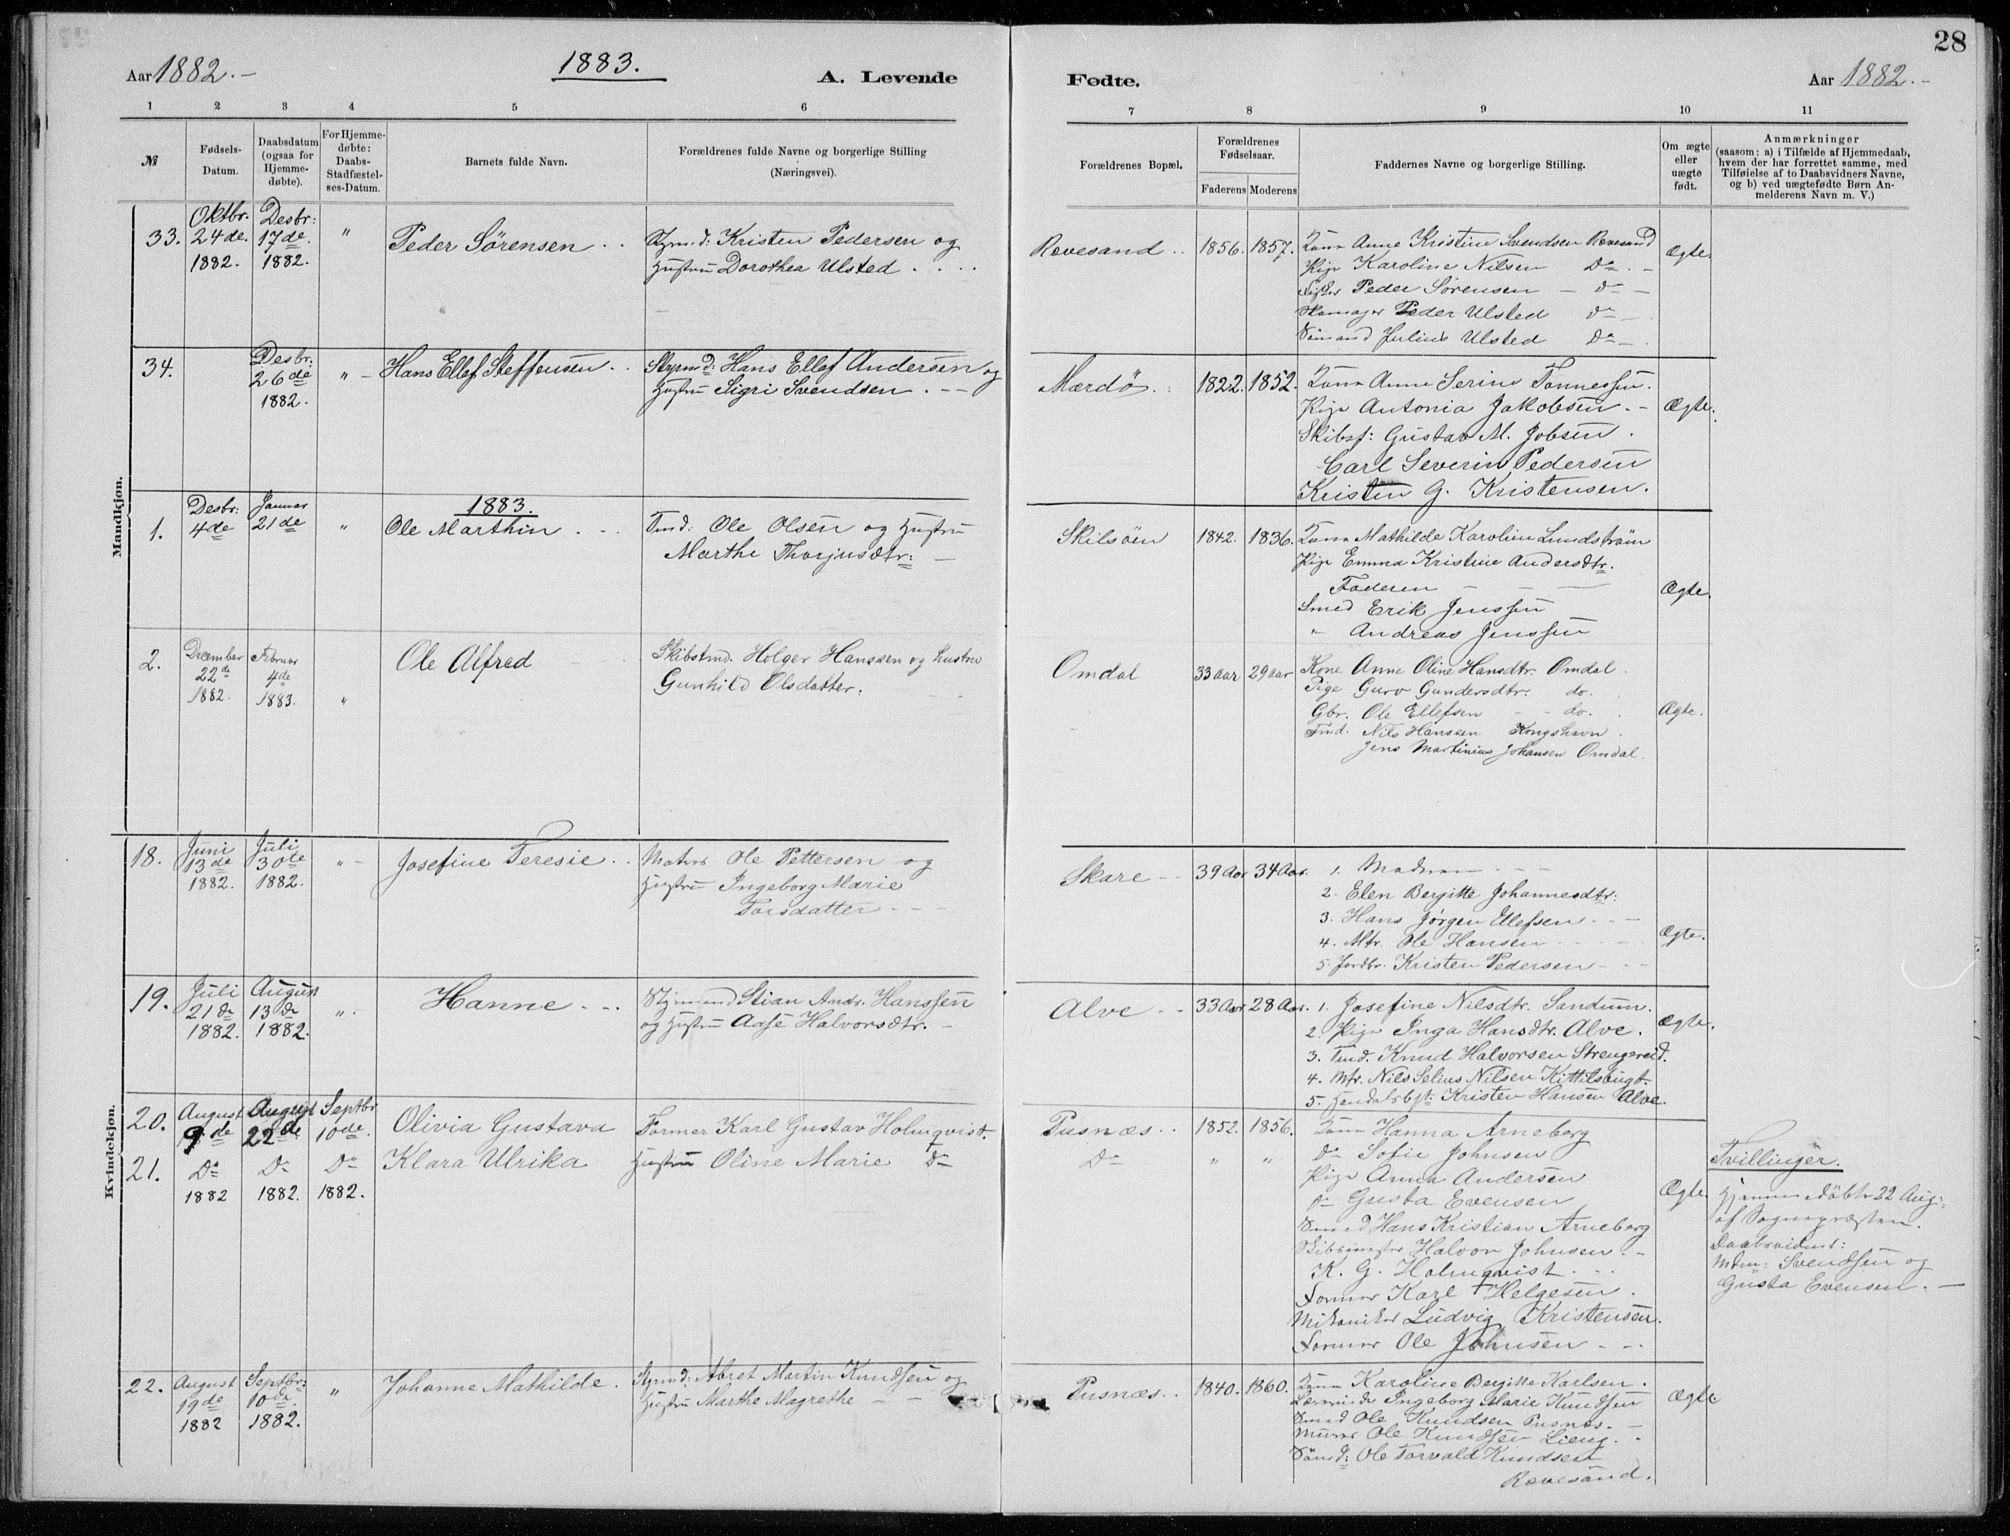 28
Aar 1882.-
1883.
A. Levende
Fødte.
Aar 1882.-
1 2 3 4 5 6 7 8 9 10 11
№
Fødsels-
Datum.
Daabsdatum
(ogsaa for
Hjemme-
døbte).
For Hjemme-
døbte:
Daabs-
Stadfæstel-
ses-Datum.
Barnets fulde Navn.
Forældrenes fulde Navne og borgerlige Stilling
(Næringsvei).
Forældrenes Bopæl.
Forældrenes
Fødselsaar.
Faderens Moderens
Faddernes Navne og borgerlige Stilling.
Om ægte
eller
uægte
født.
Anmærkninger
(saasom: a) i Tilfælde af Hjemmedaab,
hvem der har forrettet samme, med
Tilføielse af to Daabsvidners Navne,
og b) ved uægtefødte Børn An-
melderens Navn m. V.)
Mandkjøn.
33.
Oktbr.
24de.
1882.
Desbr:
17de.
1882.
"
Peder Sørensen
Styrmd: Kristen Pedersen og
Hustru Dorothea Ulsted
Rævesand
1856. 1857.
Kone Anne Kristine Svendsen Rævesand
Pige Karoline Nilsen Do
Fisker Peder Sørensen do
Peder Ulsted do
Sømand Julius Ulsted Do
Ægte.
34.
Desbr:
26de
1882.
"
Hans Ellef Steffensen
Styrmd: Hans Ellef Andersen og
Hustru Sigri Svendsen
Mærdø
1822. 1852.
Kone Anne Serine Tønnessen.
Pige Antonia Jakobsen.
Skibsf: Gustav M. Jobsen.
Carl Severin Pedersen
Kristen G. Kristensen.
Ægte.
1883.
1.
Desbr:
4de
Januar
21de
"
Ole Marthin
Tmd: Ole Olsen og Hustru
Marthe Thorjusdtr:
Skilsøen
1842. 1836.
Kone Mathilde Karoline Lundstrøm
Pige Emma Kristine Andersdtr.
Faderen
Smed Erik Jenssen
" Andreas Jenssen
Ægte.
2.
December
22de
1882.
Februar
4de
1883.
"
Ole Alfred
Skibstmd. Holger Hanssen og hustru
Gunhild Olsdatter.
Omdal
33 aar 29 aar
Kone Anne Oline Hansdtr. Omdal.
Pige Guro Gundersdtr. do.
Gbr. Ole Ellefsen do.
Tmd. Nils Hanssen Kongshavn.
Jens Martinius Johansen Omdal.
Ægte.
Kvindekjøn.
18.
Juni
13de
1882.
Juli
30te
1882.
"
Josefine Teresie
Matros Ole Pettersen og
Hustru Ingeborg Marie
Torsdatter
Skare
39 Aar 34 Aar.
1. Moderen
2. Elen Bergitte Johannesdtr:
3. Hans Jørgen Ellefsen
4. Mtr. Ole Hansen
5. Jordbr. Kristen Pedersen
Ægte.
19.
Juli
21de
1882.
August
13de
1882.
"
Hanne
Styrmand Stian Andr. Hanssen
og Hustru Aase Halvorsdtr.
Alve
33 Aar 28 Aar.
1. Josefine Nilsdtr. Sandum.
2. Pige Inga Hansdtr. Alve.
3. Tmd. Knud Halvorsen Strengereid.
4. Mtr. Nils Selius Nilsen Kittilsbugt.
5. Handelsbst: Kristen Hansen Alve.
Ægte.
20.
August
9de
August
22de
Septbr
10de.
Olivia Gustava
Former Karl Gustav Holmqvist.
Pusnæs
1852. 1856.
21.
Do
1882
Do
1882.
Do
1882.
Klara Ulrika
Hustru Oline Marie Do
Do
" "
Kone Hanna Arneberg
do Sofie Johnsen
Pige Anna Andersen
do Gusta Evensen
Smed Hans Kristian Arneberg
Halvor Johnsen
K. G. Holmqvist
Former Karl Helgesen.
Mekaniker Ludvig Kristensen.
Former Ole Johnsen
Ægte
Tvillinger.
Hjemmedøbte 22 Aug:
af Sognepræsten.
Daabsvidner:
Mdm: Svendsen og
Gusta Evensen.
22.
August
19de
1882
Septbr:
10de
1882.
"
Johanne Mathilde.
Styrmd: Abret Martin Knudsen og
Hustru Marthe Magrethe
Pusnæs
1840. 1860.
Kone Karoline Bergitte Karlsen.
Ingeborg Marie Knudsen
Smed Ole Knudsen Pusnæs.
Murer Ole Knudsen Lieng.
Sømd: Ole Torvald Knudsen
Rævesand.
Ægte